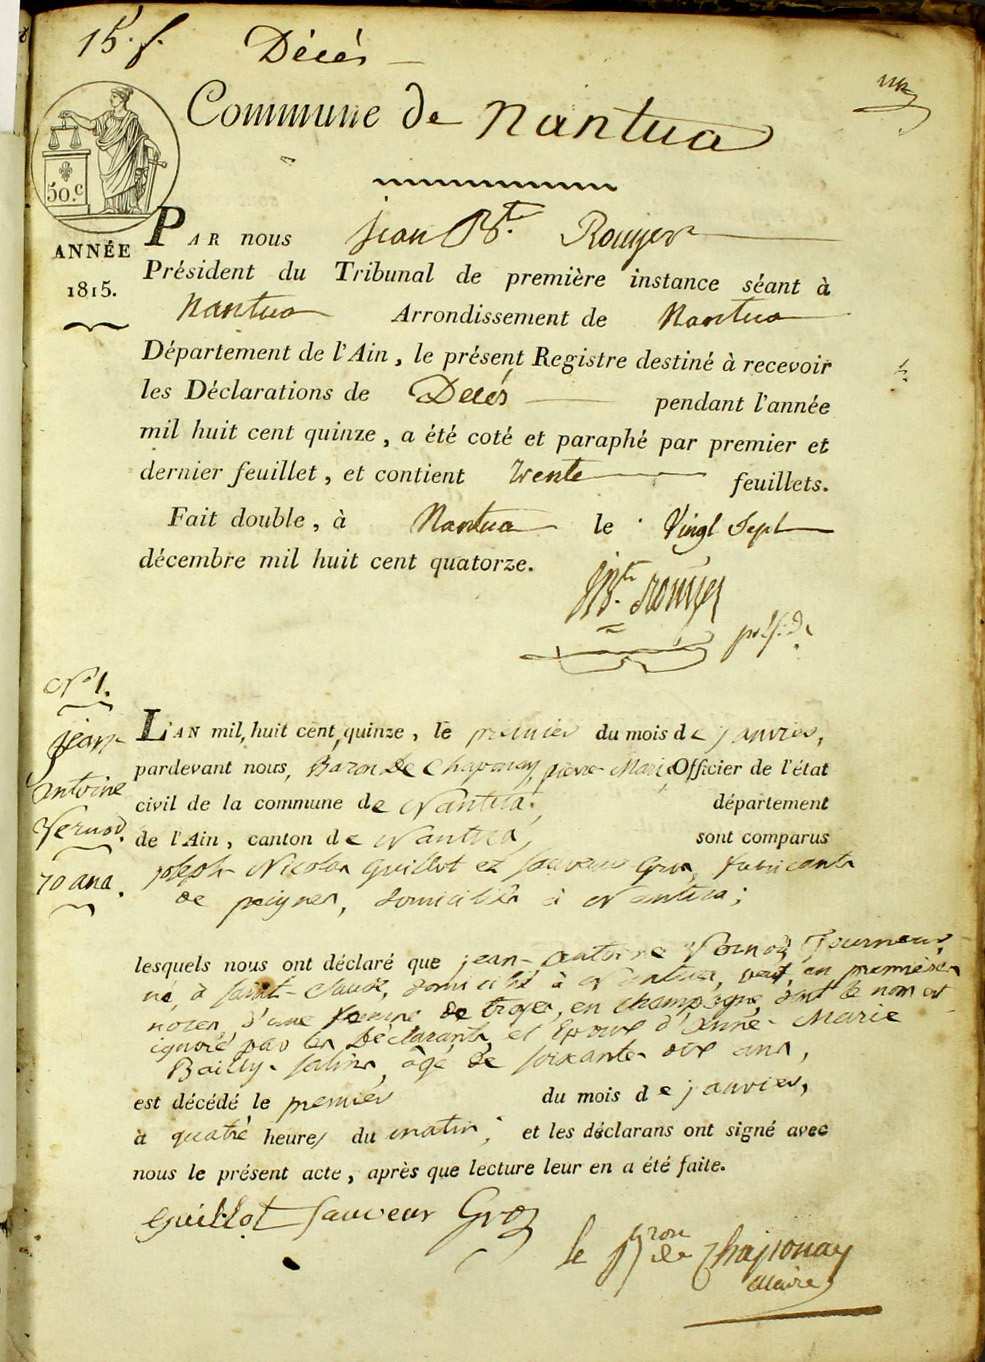 15. f. Décés
Commune de Nantua
50.c
ANNÉE
1815.
PAR nous jean Bte. Rouyer
Président du Tribunal de première instance séant à
Nantua Arrondissement de Nantua
Département de l'Ain, le présent Registre destiné à recevoir
les Déclarations de Décés pendant l'année
mil huit cent quinze, a été coté et paraphé par premier et
dernier feuillet, et contient trente feuillets.
Fait double, à Nantua le Vingt Sept
décembre mil huit cent quatorze.
JBte. Rouyer
présidt.
No 1.
jean
antoine
Vernod.
70 ans.
L'AN mil huit cent quinze, le premier du mois de janvier,
pardevant nous, Baron De Chaponay, pierre Marie Officier de l'état
civil de la commune de Nantua, département
de l'Ain, canton de Nantua, sont comparus
joseph Nicolas Guillot et Sauveur Gros, fabricants
de peignes, domiciliés à Nantua;
lesquels nous ont déclaré que jean-Antoine Vernod, Tourneur,
né, à Saint-Claude, domicilié à Nantua, veuf, en premières
noces, d'une femme de troyes, en champagne, dont le nom est
ignoré par les Déclarants, et Epoux d'Anne-Marie
Bailly-Salins, âgé de soixante-dix ans,
est décédé le premier du mois de janvier,
à quatre heures du matin; et les déclarans ont signé avec
nous le présent acte, après que lecture leur en a été faite.
Guillot Sauveur Gros
le Bron de Chaponay
Maire